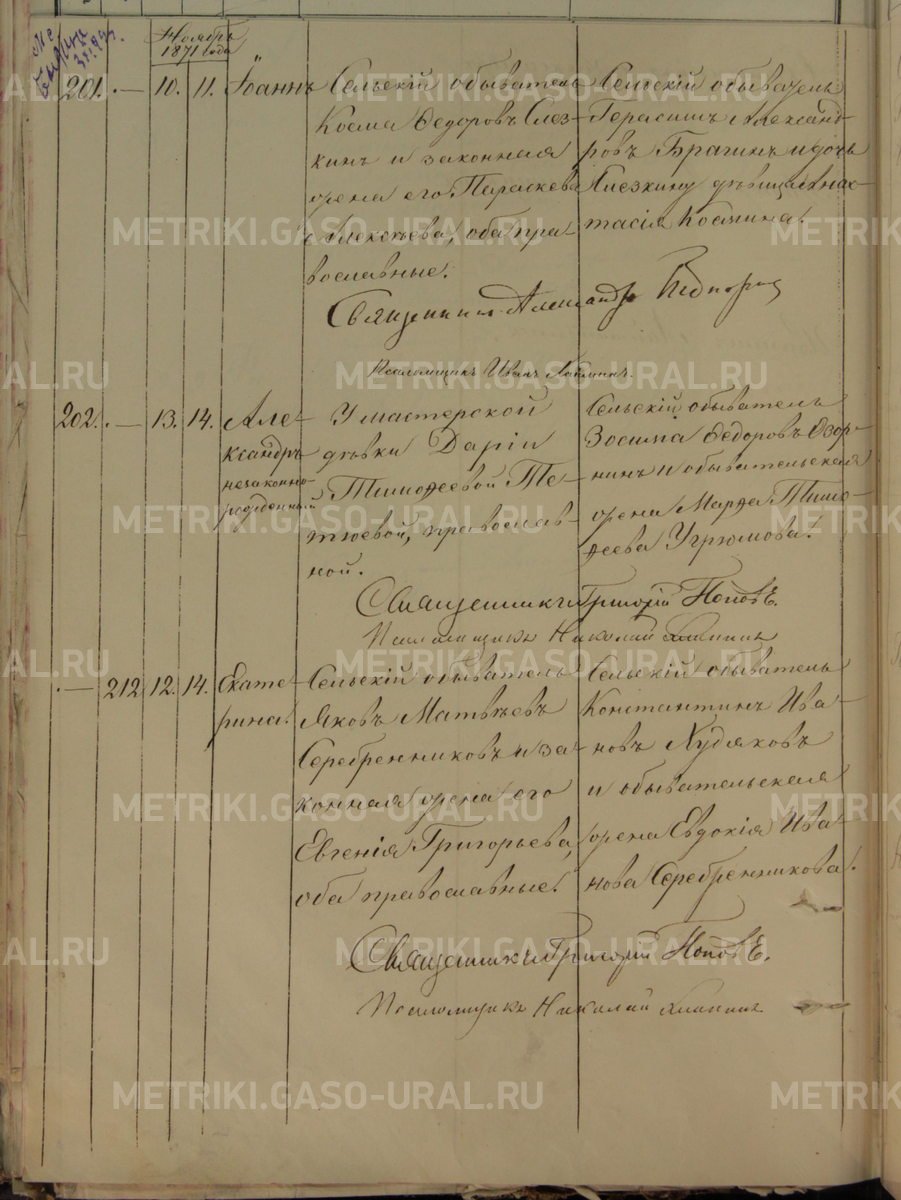 Ноябрь
1871 года
201. — 10. 11. Іоаннъ
Сельскій обыватель
Косма Ѳедоровъ Слез-
кинъ и законная
жена его Параскева
Алексѣева, оба пра-
вославные.
Сельскій обыватель
Герасимъ Александ-
ровъ Брагинъ и дочь
Слезкину дѣвица Анас-
тасія Космина.
Священникъ Александръ
Псаломщикъ Иванъ
202. — 13. 14. Але-
ксандръ
незаконно-
рожденный
У мастерской
дѣвки Даріи
Тимоѳеевой Те-
тюевой, православ-
ной.
Сельскій обыватель
Зосима Ѳедоровъ Озор-
нинъ и обывательская
жена Марѳа Тимо-
ѳеева Угрюмова.
Священникъ Григорій Поповъ.
Псаломщикъ Николай
— 212 12. 14. Екате-
рина.
Сельскій обыватель
Яковъ Матвѣевъ
Серебренниковъ и за-
конная жена его
Евгенія Григорьева,
оба православные.
Сельскій обыватель
Константинъ Ива-
новъ Худяковъ
и обывательская
жена Евдокія Ива-
нова Серебренникова.
Священникъ Григорій Поповъ.
Псаломщикъ Николай
METRIKI.GASO-URAL.RU